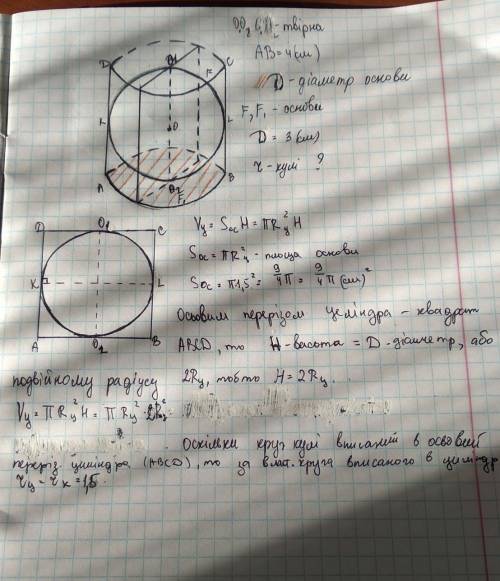 твірна
AB = 4 (см)
D - діаметр основи
F, F₁ - основи
D = 3 (см)
r - кулі ?
D
O1
C
F
K
O
L
A
O2
B
F₁
D
O1
C
K
L
A
O2
B
Vц = Sос H = πRц² H
Sос = πRц² - площа основи
Sос = π1,5² = 9/4 π = 9/4 π (см)²
Осьовим перерізом циліндра - квадрат
ABCD, то H - висота = D - діаметр, або
подвійному радіусу 2Rц, тобто H = 2Rц.
Vц = πRц² H = πRц² · 2Rц
Оскільки круг кулі вписаний в осьовий
переріз циліндра (ABCD), то за власт. круга вписаного в циліндр
rц = rк = 1,5.